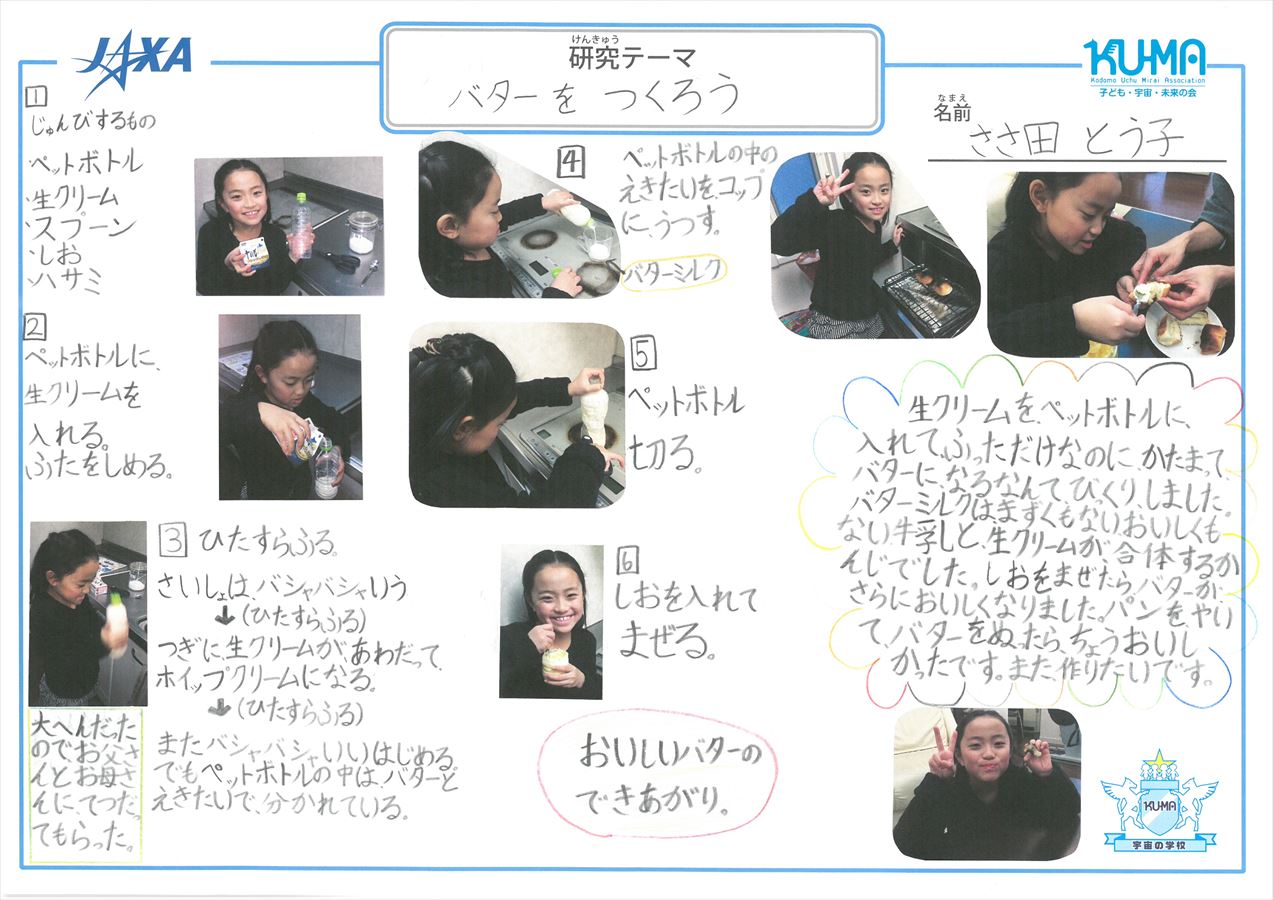 JAXA
けんきゅう
研究テーマ
バターを つくろう
KU-MA
Kodomo Uchu Mirai Association
子ども・宇宙・未来の会
なまえ
名前
ささ田 とう子
1
じゅんびするもの
・ペットボトル
・生クリーム
・スプーン
・しお
・ハサミ
2
ペットボトルに、
生クリームを
入れる。
ふたをしめる。
3 ひたすらふる。
さいしょは、バシャバシャいう
↓(ひたすらふる)
つぎに、生クリームが、あわだって、
ホイップクリームになる。
↓(ひたすらふる)
またバシャバシャいいはじめる。
でもペットボトルの中は、バターと
えきたいで、分かれている。
大へんだった
のでお父さ
んとお母さ
んに、てつだっ
てもらった。
4
ペットボトルの中の
えきたいを、コップ
に、うつす。
バターミルク
5
ペットボトル
切る。
6
しおを入れて
まぜる。
おいしいバターの
できあがり。
生クリームを、ペットボトルに、
入れて、ふっただけなのに、かたまって、
バターに、なるなんて、びっくり、しました。
バターミルクは、まずくもないおいしくも
ない牛乳と、生クリームが、合体するか
んじでした。しおをまぜたら、バターが、
さらにおいしくなりました。パンを、やい
て、バターをぬったら、ちょうおいし
かったです。また、作りたいです。
KU-MA
宇宙の学校